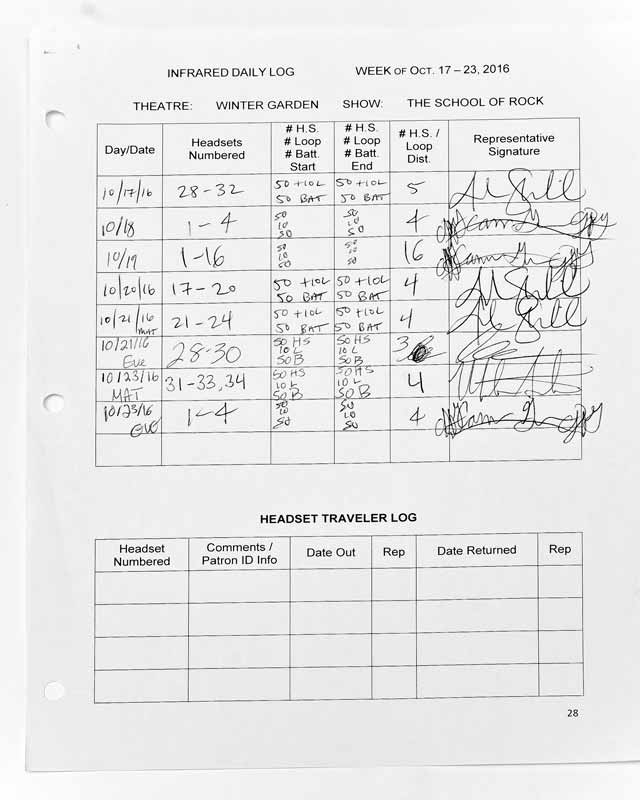 INFRARED DAILY LOG WEEK OF OCT. 17 – 23, 2016
THEATRE: WINTER GARDEN SHOW: THE SCHOOL OF ROCK
Day/Date Headsets Numbered # H.S. # Loop # Batt. Start # H.S. # Loop # Batt. End # H.S. / Loop Dist. Representative Signature
10/17/16 28-32 50 +10L 50 BAT 50 +10L 50 BAT 5
10/18 1-4 50 10 50 50 10 50 4
10/19 1-16 50 10 50 50 10 50 16
10/20/16 17-20 50 +10L 50 BAT 50 +10L 50 BAT 4
10/21/16 MAT 21-24 50 +10L 50 BAT 50 +10L 50 BAT 4
10/21/16 Eve 28-30 50 HS 10 L 50 B 50 HS 10 L 50 B 3
10/23/16 MAT 31-33, 34 50 HS 10 L 50 B 50 HS 10 L 50 B 4
10/23/16 eve 1-4 50 10 50 50 10 50 4
HEADSET TRAVELER LOG
Headset Numbered Comments / Patron ID Info Date Out Rep Date Returned Rep
28